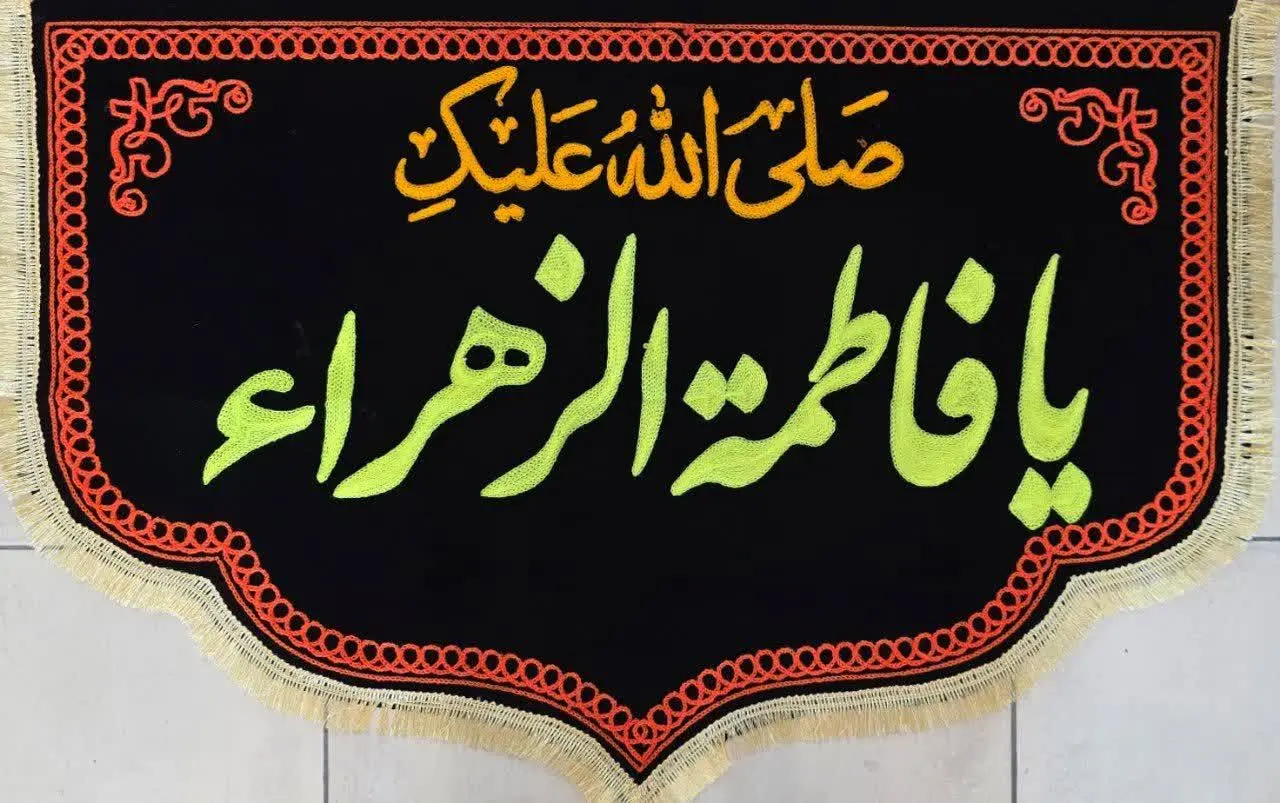 صَلَی اللهُ عَلَیکِ
یا فاطمة الزهراء